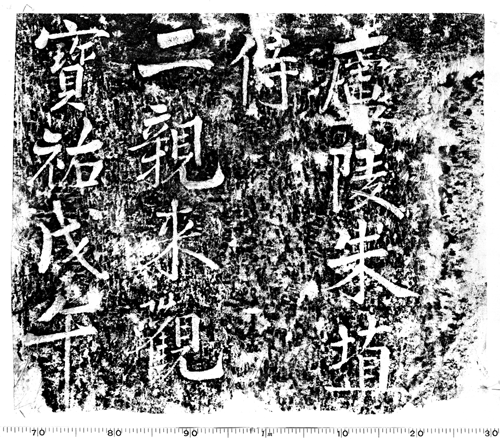 廬陵朱埴
侍
二親来觀
寶祐戊午
70 80 90 1m 10 20 30